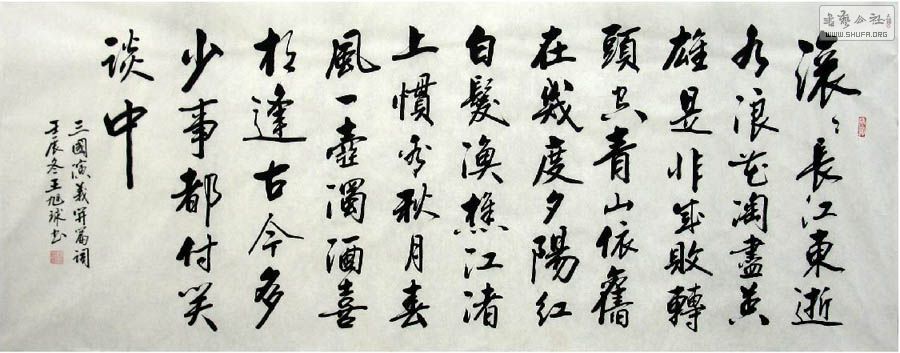 滾〻長江東逝
水浪花淘盡英
雄是非成敗轉
頭空青山依舊
在幾度夕陽紅
白髮漁樵江渚
上慣看秋月春
風一壺濁酒喜
相逢古今多
少事都付笑
談中
三國演義開篇詞
壬辰冬王旭球书
书藝公社
WWW.SHUFA.ORG